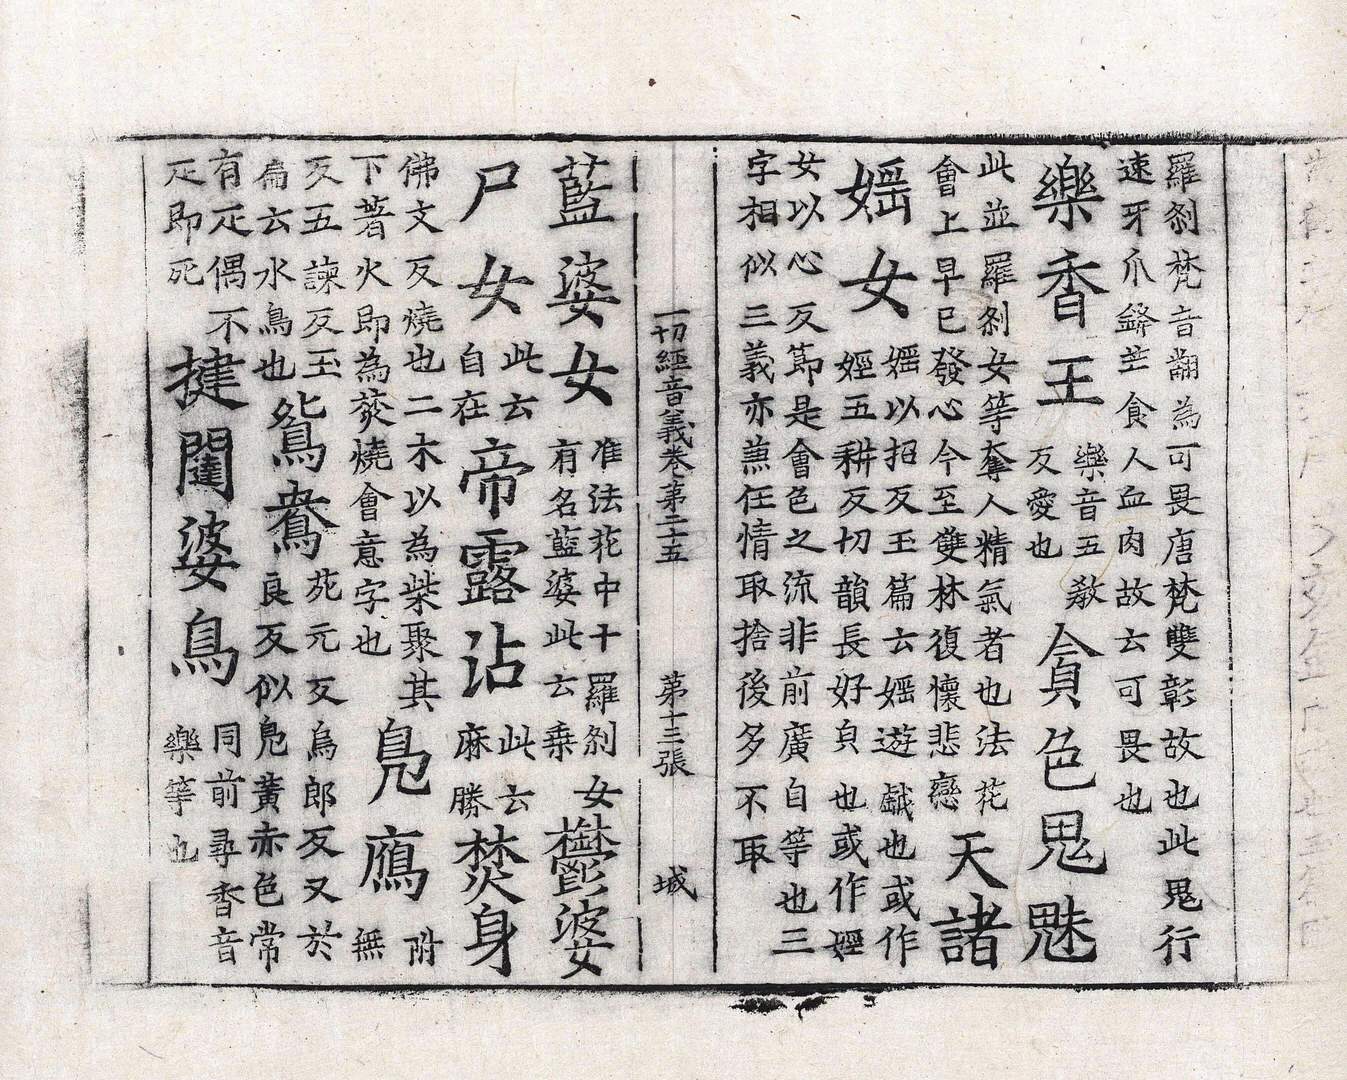 羅刹梵音翻為可畏唐梵雙彰故也此鬼行
速牙爪鏘芒食人血肉故云可畏也
樂香王
樂音五教
反愛也
貪色鬼魅
此並羅刹女等奪人精氣者也法花
會上早已發心今至雙林復懷悲戀
天諸
媱女
媱以招反玉篇云媱遊戲也或作
娙五耕反切韻長好皃也或作婬
女以心反即是會色之流非前廣自等也三
字相似三義亦兼任情取捨後多不取
一切經音義卷第二十五 第十三張 城
藍婆女
准法花中十羅刹女
有名藍婆此云乘
鬱婆
尸女
此云
自在
帝露沾
此云
麻勝
焚身
佛文反燒也二木以為柴聚其
下著火即為焚燒會意字也
鳧鴈
附
無
反五諫反玉
篇云水鳥也
鴛鴦
苑元反烏郎反又於
良反似鳧黃赤色常
有疋偶不
疋即死
揵闥婆鳥
同前尋香音
樂等也